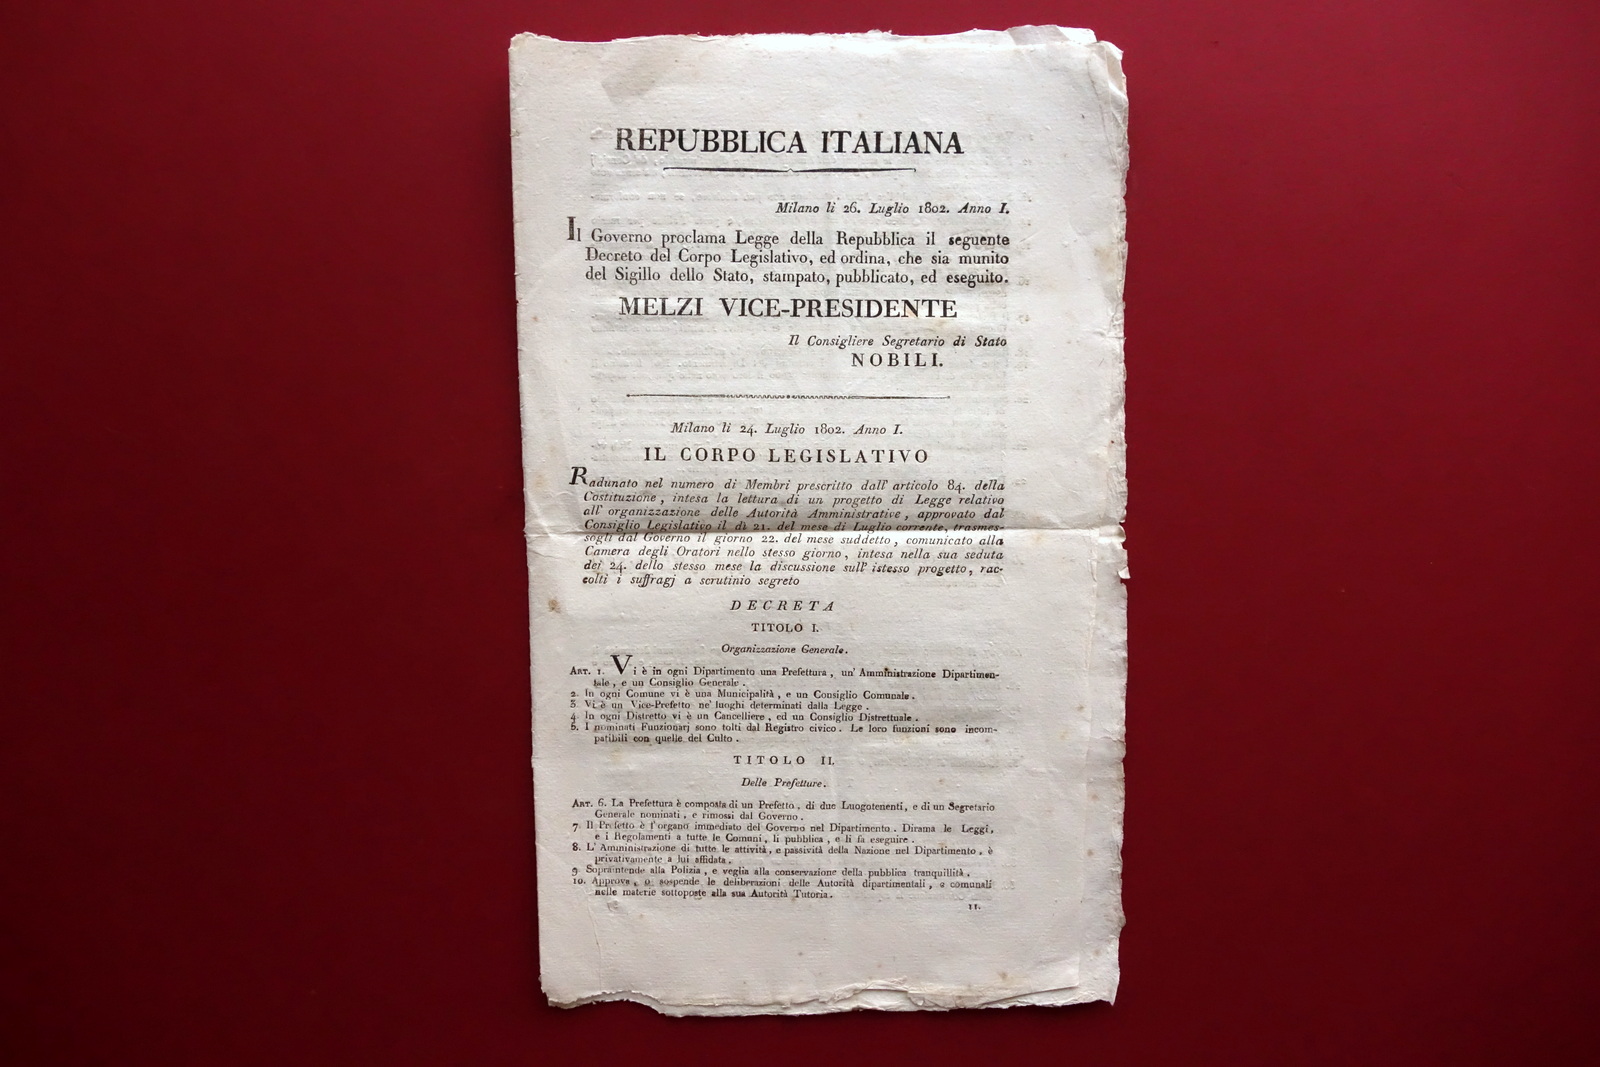 REPUBBLICA ITALIANA
Milano li 26. Luglio 1802. Anno I.
Il Governo proclama Legge della Repubblica il seguente
Decreto del Corpo Legislativo, ed ordina, che sia munito
del Sigillo dello Stato, stampato, pubblicato, ed eseguito.
MELZI VICE-PRESIDENTE
Il Consigliere Segretario di Stato
NOBILI.
Milano li 24. Luglio 1802. Anno I.
IL CORPO LEGISLATIVO
Radunato nel numero di Membri prescritto dall' articolo 84. della
Costituzione, intesa la lettura di un progetto di Legge relativo
all' organizzazione delle Autorità Amministrative, approvato dal
Consiglio Legislativo il dì 21. del mese di Luglio corrente, trasmes-
sogli dal Governo il giorno 22. del mese suddetto, comunicato alla
Camera degli Oratori nello stesso giorno, intesa nella sua seduta
dei 24. dello stesso mese la discussione sull' istesso progetto, rac-
colti i suffragj a scrutinio segreto
DECRETA
TITOLO I.
Organizzazione Generale.
ART. 1. Vi è in ogni Dipartimento una Prefettura, un' Amministrazione Dipartimen-
tale, e un Consiglio Generale.
2. In ogni Comune vi è una Municipalità, e un Consiglio Comunale.
3. Vi è un Vice-Prefetto ne' luoghi determinati dalla Legge.
4. In ogni Distretto vi è un Cancelliere, ed un Consiglio Distrettuale.
5. I nominati Funzionarj sono tolti dal Registro civico. Le loro funzioni sono incom-
patibili con quelle del Culto.
TITOLO II.
Delle Prefetture.
ART. 6. La Prefettura è composta di un Prefetto, di due Luogotenenti, e di un Segretario
Generale nominati, e rimossi dal Governo.
7. Il Prefetto è l'organo immediato del Governo nel Dipartimento. Dirama le Leggi,
e i Regolamenti a tutte le Comuni, li pubblica, e li fa eseguire.
8. L' Amministrazione di tutte le attività, e passività della Nazione nel Dipartimento, è
privativamente a lui affidata.
9. Sopraintende alla Polizia, e veglia alla conservazione della pubblica tranquillità.
10. Approva, o sospende le deliberazioni delle Autorità dipartimentali, e comunali
nelle materie sottoposte alla sua Autorità Tutoria.
11.